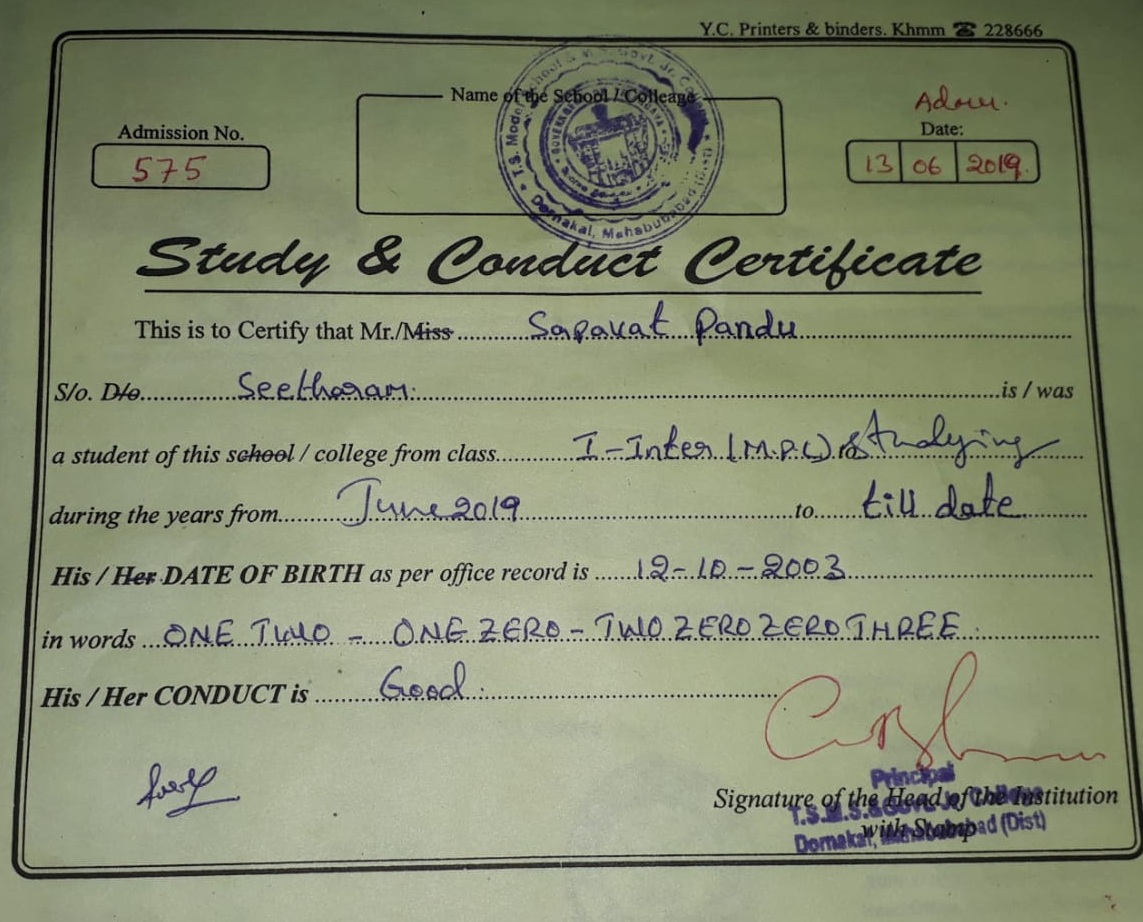 Y.C. Printers & binders. Khmm ☎ 228666
Name of the School / Colleage
Admission No.
575
Adm.
Date:
13 06 2019
T.S. Model School & Govt. Jr. College
Dornakal, Mahabubabad (Dist)
Study & Conduct Certificate
This is to Certify that Mr./Miss Sapavat Pandu
S/o. D/o. Seetharam. is / was
a student of this school / college from class I-Inter (M.P.C) to studying
during the years from June 2019 to till date
His / Her DATE OF BIRTH as per office record is 12-10-2003
in words ONE TWO - ONE ZERO - TWO ZERO ZERO THREE
His / Her CONDUCT is Good.
Principal
Signature of the Head of the Institution
T.S.M.S. & Govt. Jr. College
with Stamp
Dornakal, Mahabubabad (Dist)